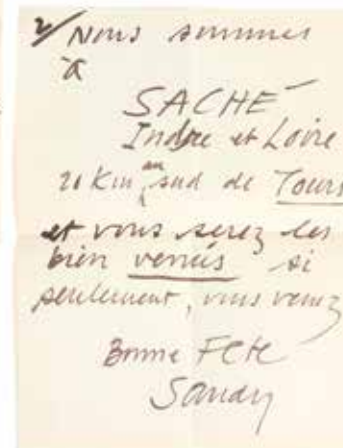 2/ Nous sommes
à
SACHÉ
Indre et Loire
20 Km au sud de Tours
et vous serez les
bien venus si
seulement, vous venez
Bonne Fête
Sandy